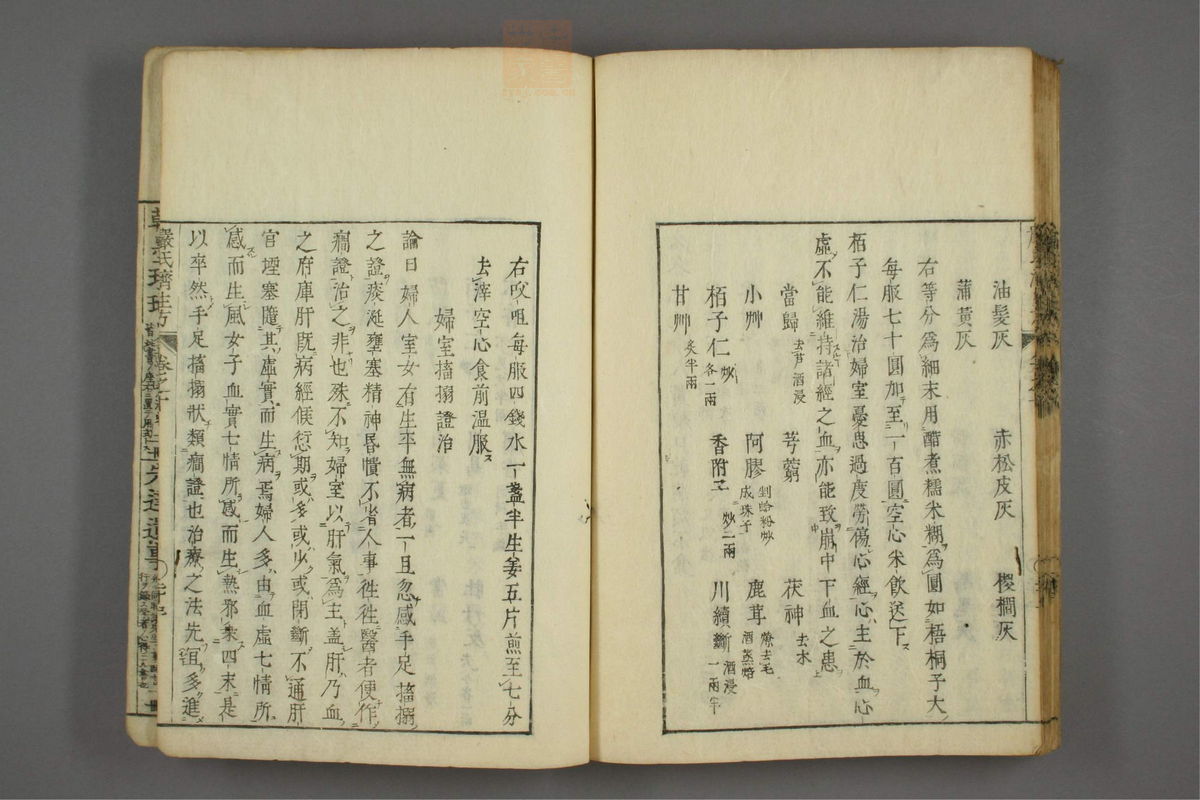 油髮灰　赤松皮灰　椶櫚灰
蒲黃灰
右等分爲細末用醋煮糯米糊爲圓如梧桐子大
每服七十圓加至一百圓空心米飮送下
栢子仁湯治婦室憂思過度勞傷心經心主於血心
虛不能維持諸經之血亦能致崩中下血之患
當歸去芦酒浸　芎藭　茯神去木
小艸　阿膠剉蛤粉炒成珠子　鹿茸燎去毛酒蒸焙
栢子仁炒各一兩　香附子炒二兩　川續斷酒浸一兩半
甘艸炙半兩
右㕮咀每服四錢水一盞半生姜五片煎至七分
去滓空心食前温服
婦室搐搦證治
論曰婦人室女有生平無病者一旦忽感手足搐搦
之證痰涎壅塞精神昏憒不省人事徃徃醫者便作
癎證治之非也殊不知婦室以肝氣爲主盖肝乃血
之府庫肝既病經候愆期或多或少或閉斷不通肝
官堙塞隨其虛實而生病焉婦人多由血虛七情所
感而生風女子血實七情所感而生熱邪乘四末是
以卒然手足搐搦狀類癎證也治療之法先宜多進
嚴氏濟生方
卷之